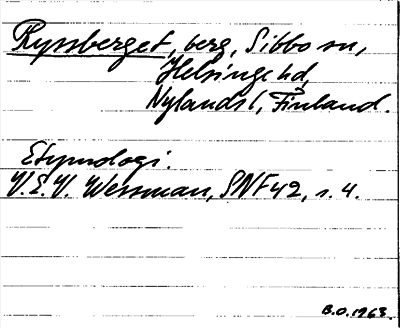 Ryssberget, berg, Sibbo sn,
Helsinge hd,
Nylands l, Finland.
Etymologi.
V.E.V. Wessman, SNF 42, s. 4.
B.O. 1963.